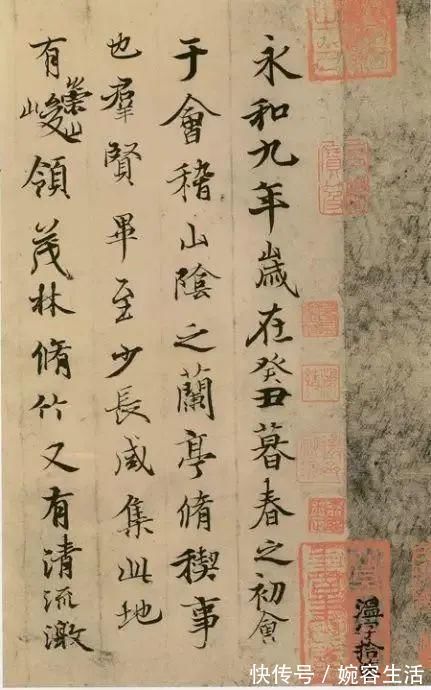 永和九年歲在癸丑暮春之初會
于會稽山陰之蘭亭脩稧事
也羣賢畢至少長咸集此地
有崇山峻領茂林脩竹又有清流激
快传号/婉容生活